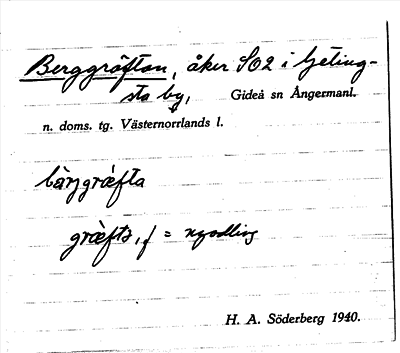 Berggräftan, åker SO2 i Geting-
sta by, Gideå sn Ångermanl.
n. doms. tg. Västernorrlands l.
bàrjgræ̀fta
græ̀fta, f = nyodling
H. A. Söderberg 1940.